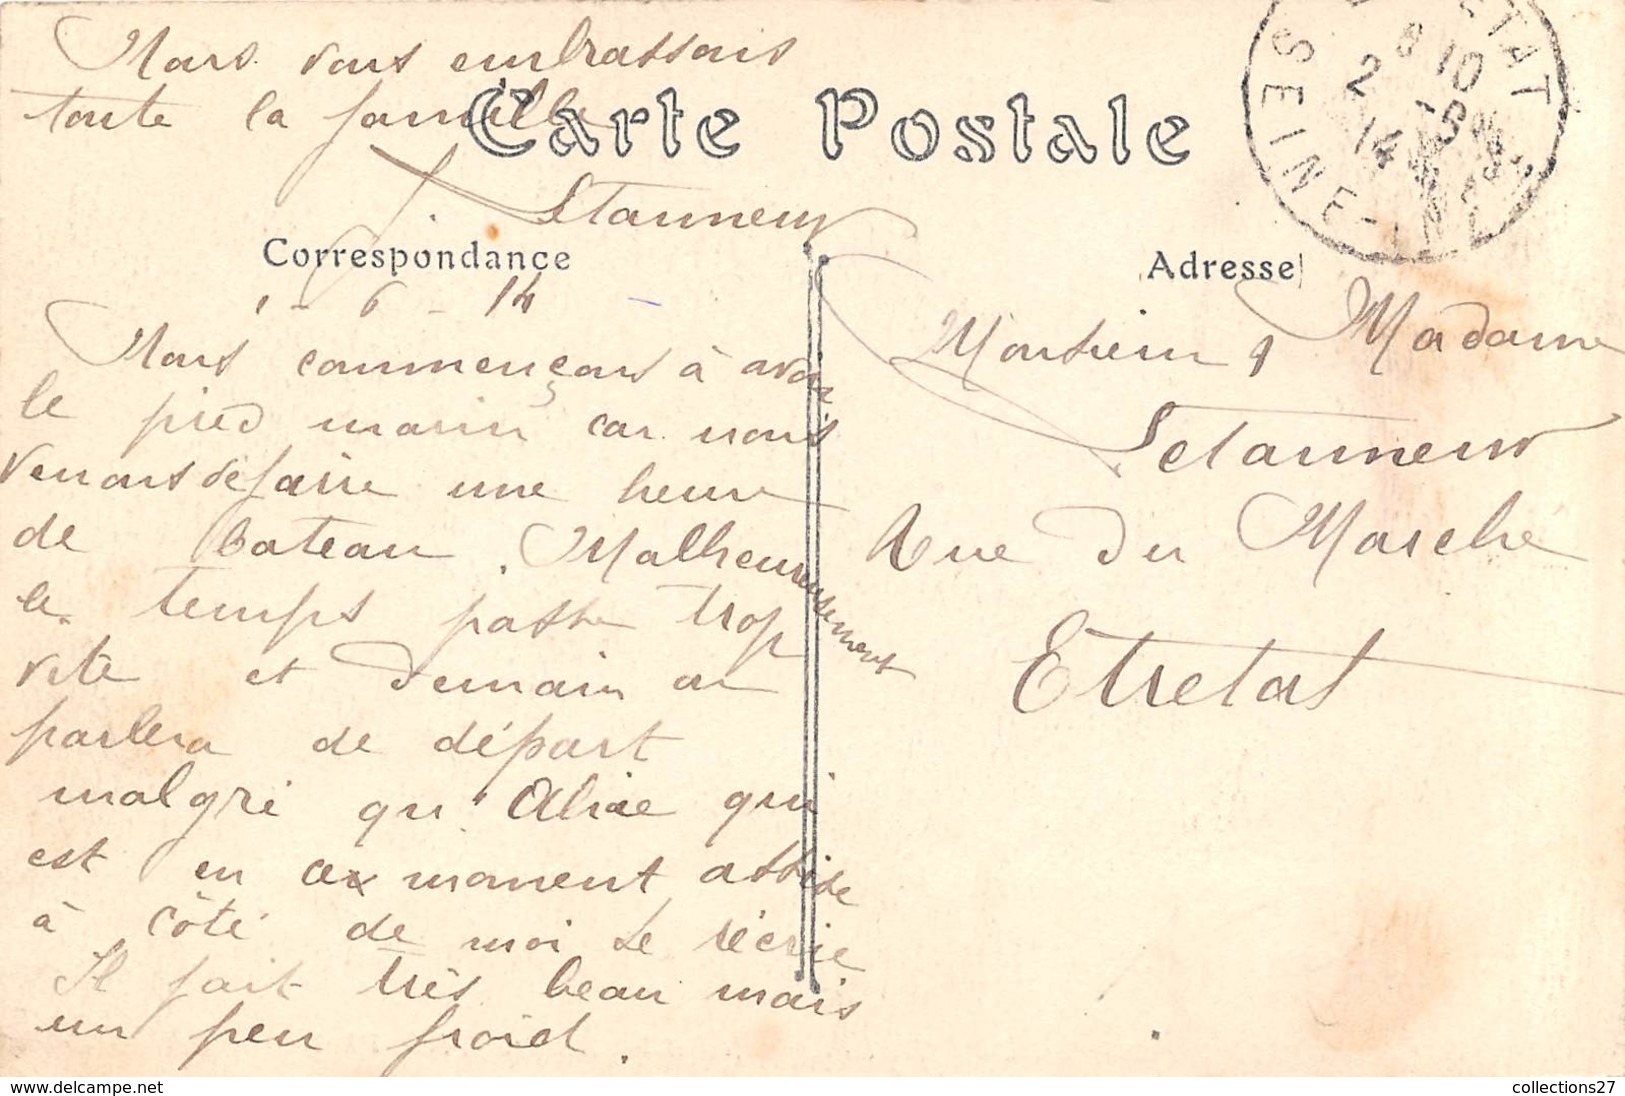 Nous vous embrassons
toute la famille
Letanneur
Carte Postale
ETRETAT
SEINE-
8 10
2 -6
14
Correspondance
1 - 6 - 14
Nous commençons à avoir
le pied marin car nous
venons de faire une heure
de bateau. Malheureusement
le temps passe trop
vite et demain on
parlera de départ
malgré qu'Alice qui
est en ce moment assise
à côté de moi se récrie
Il fait très beau mais
un peu froid.
Adresse
Monsieur & Madame
Letanneur
Rue du Marche
Etretat
www.delcampe.net
collections27